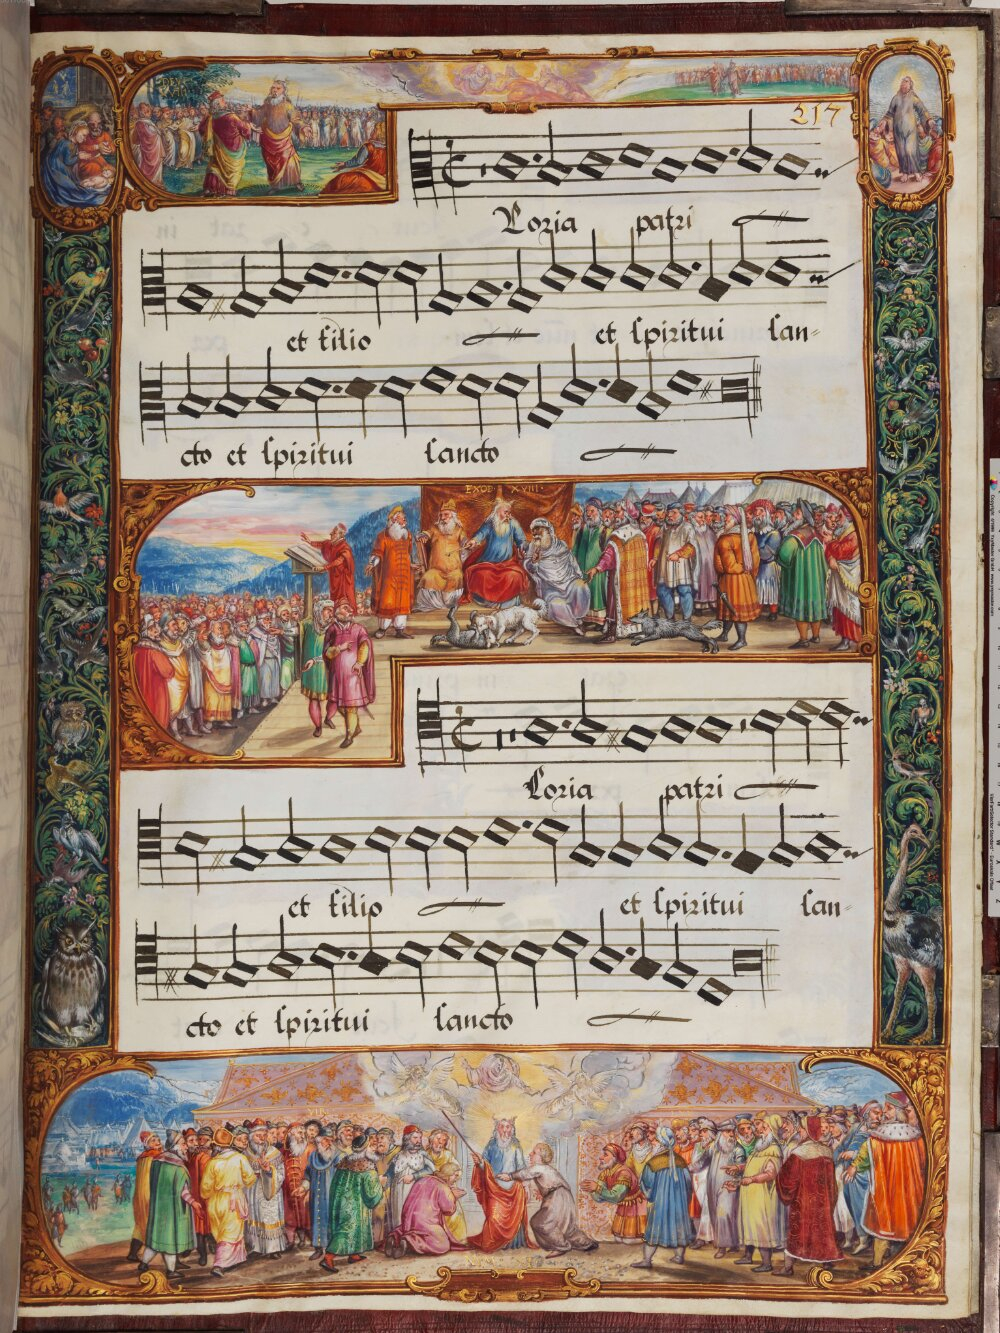 217
Loria patri
et filio et spiritui san-
cto et spiritui sancto
EXOD XVIII
Loria patri
et filio et spiritui san-
cto et spiritui sancto